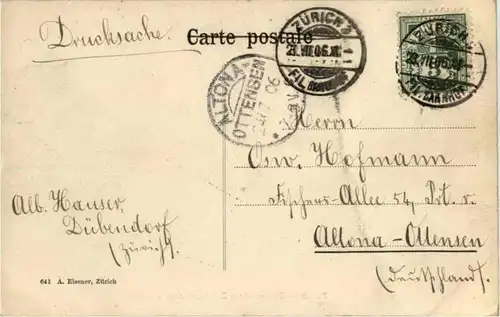 Drucksache.
Carte postale
ZÜRICH 3
28.VII.06
FIL.BAHNHOF
ZÜRICH 3
28.VII.06
FIL.BAHNHOF
5
ALTONA
OTTENSEN
Herrn
Osw. Hofmann
Fischers-Allee 54, Pt. r.
Altona-Ottensen
(Deutschland).
Alb. Hauser,
Dübendorf
(Zürich).
643 A. Elsener, Zürich